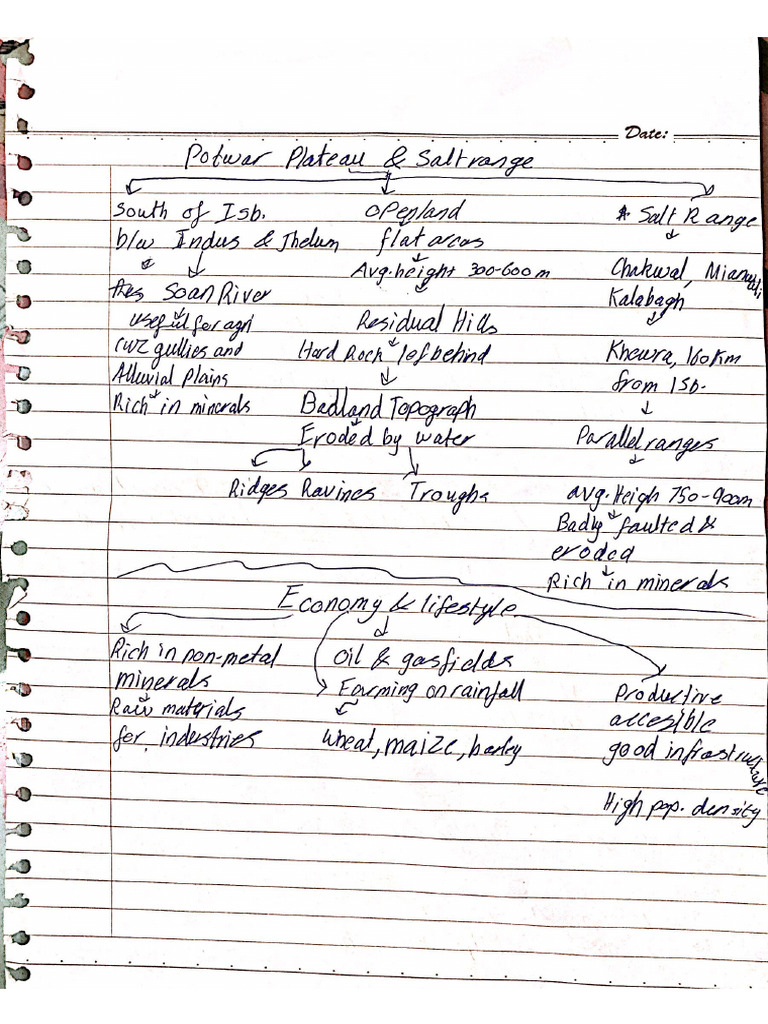 Date:
Potwar Plateau & Salt range
South of Isb.
b/w Indus & Jhelum
Soan River
useful for agri
cuz gullies and
Alluvial Plains
Rich in minerals
openland
flat areas
Avg. height 300-600m
Residual Hills
Hard Rock lef behind
Badland Topograph
Eroded by water
Ridges Ravines Troughs
Salt Range
Chakwal, Mianwali
Kalabagh
Khewra, 160km
from Isb.
Parallel ranges
avg. Heigh 750-900m
Badly faulted &
eroded
Rich in minerals
Economy & lifestyle
Rich in non-metal
minerals
Raw materials
for industries
Oil & gasfields
Farming on rainfall
wheat, maize, barley
Productive
accesible
good infrastructure
High pop. density